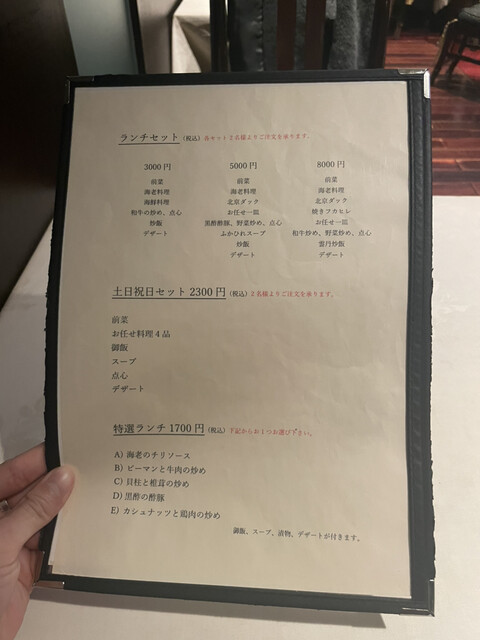 ランチセット (税込) 各セット2名様よりご注文を承ります。
3000円
前菜
海老料理
海鮮料理
和牛の炒め、点心
炒飯
デザート
5000円
前菜
海老料理
北京ダック
お任せ一皿
黒酢酢豚、野菜炒め、点心
ふかひれスープ
炒飯
デザート
8000円
前菜
海老料理
北京ダック
焼きフカヒレ
お任せ一皿
和牛炒め、野菜炒め、点心
雲丹炒飯
デザート
土日祝日セット 2300円 (税込) 2名様よりご注文を承ります。
前菜
お任せ料理4品
御飯
スープ
点心
デザート
特選ランチ 1700円 (税込) 下記からお1つお選び下さい。
A) 海老のチリソース
B) ピーマンと牛肉の炒め
C) 貝柱と椎茸の炒め
D) 黒酢の酢豚
E) カシュナッツと鶏肉の炒め
御飯、スープ、漬物、デザートが付きます。